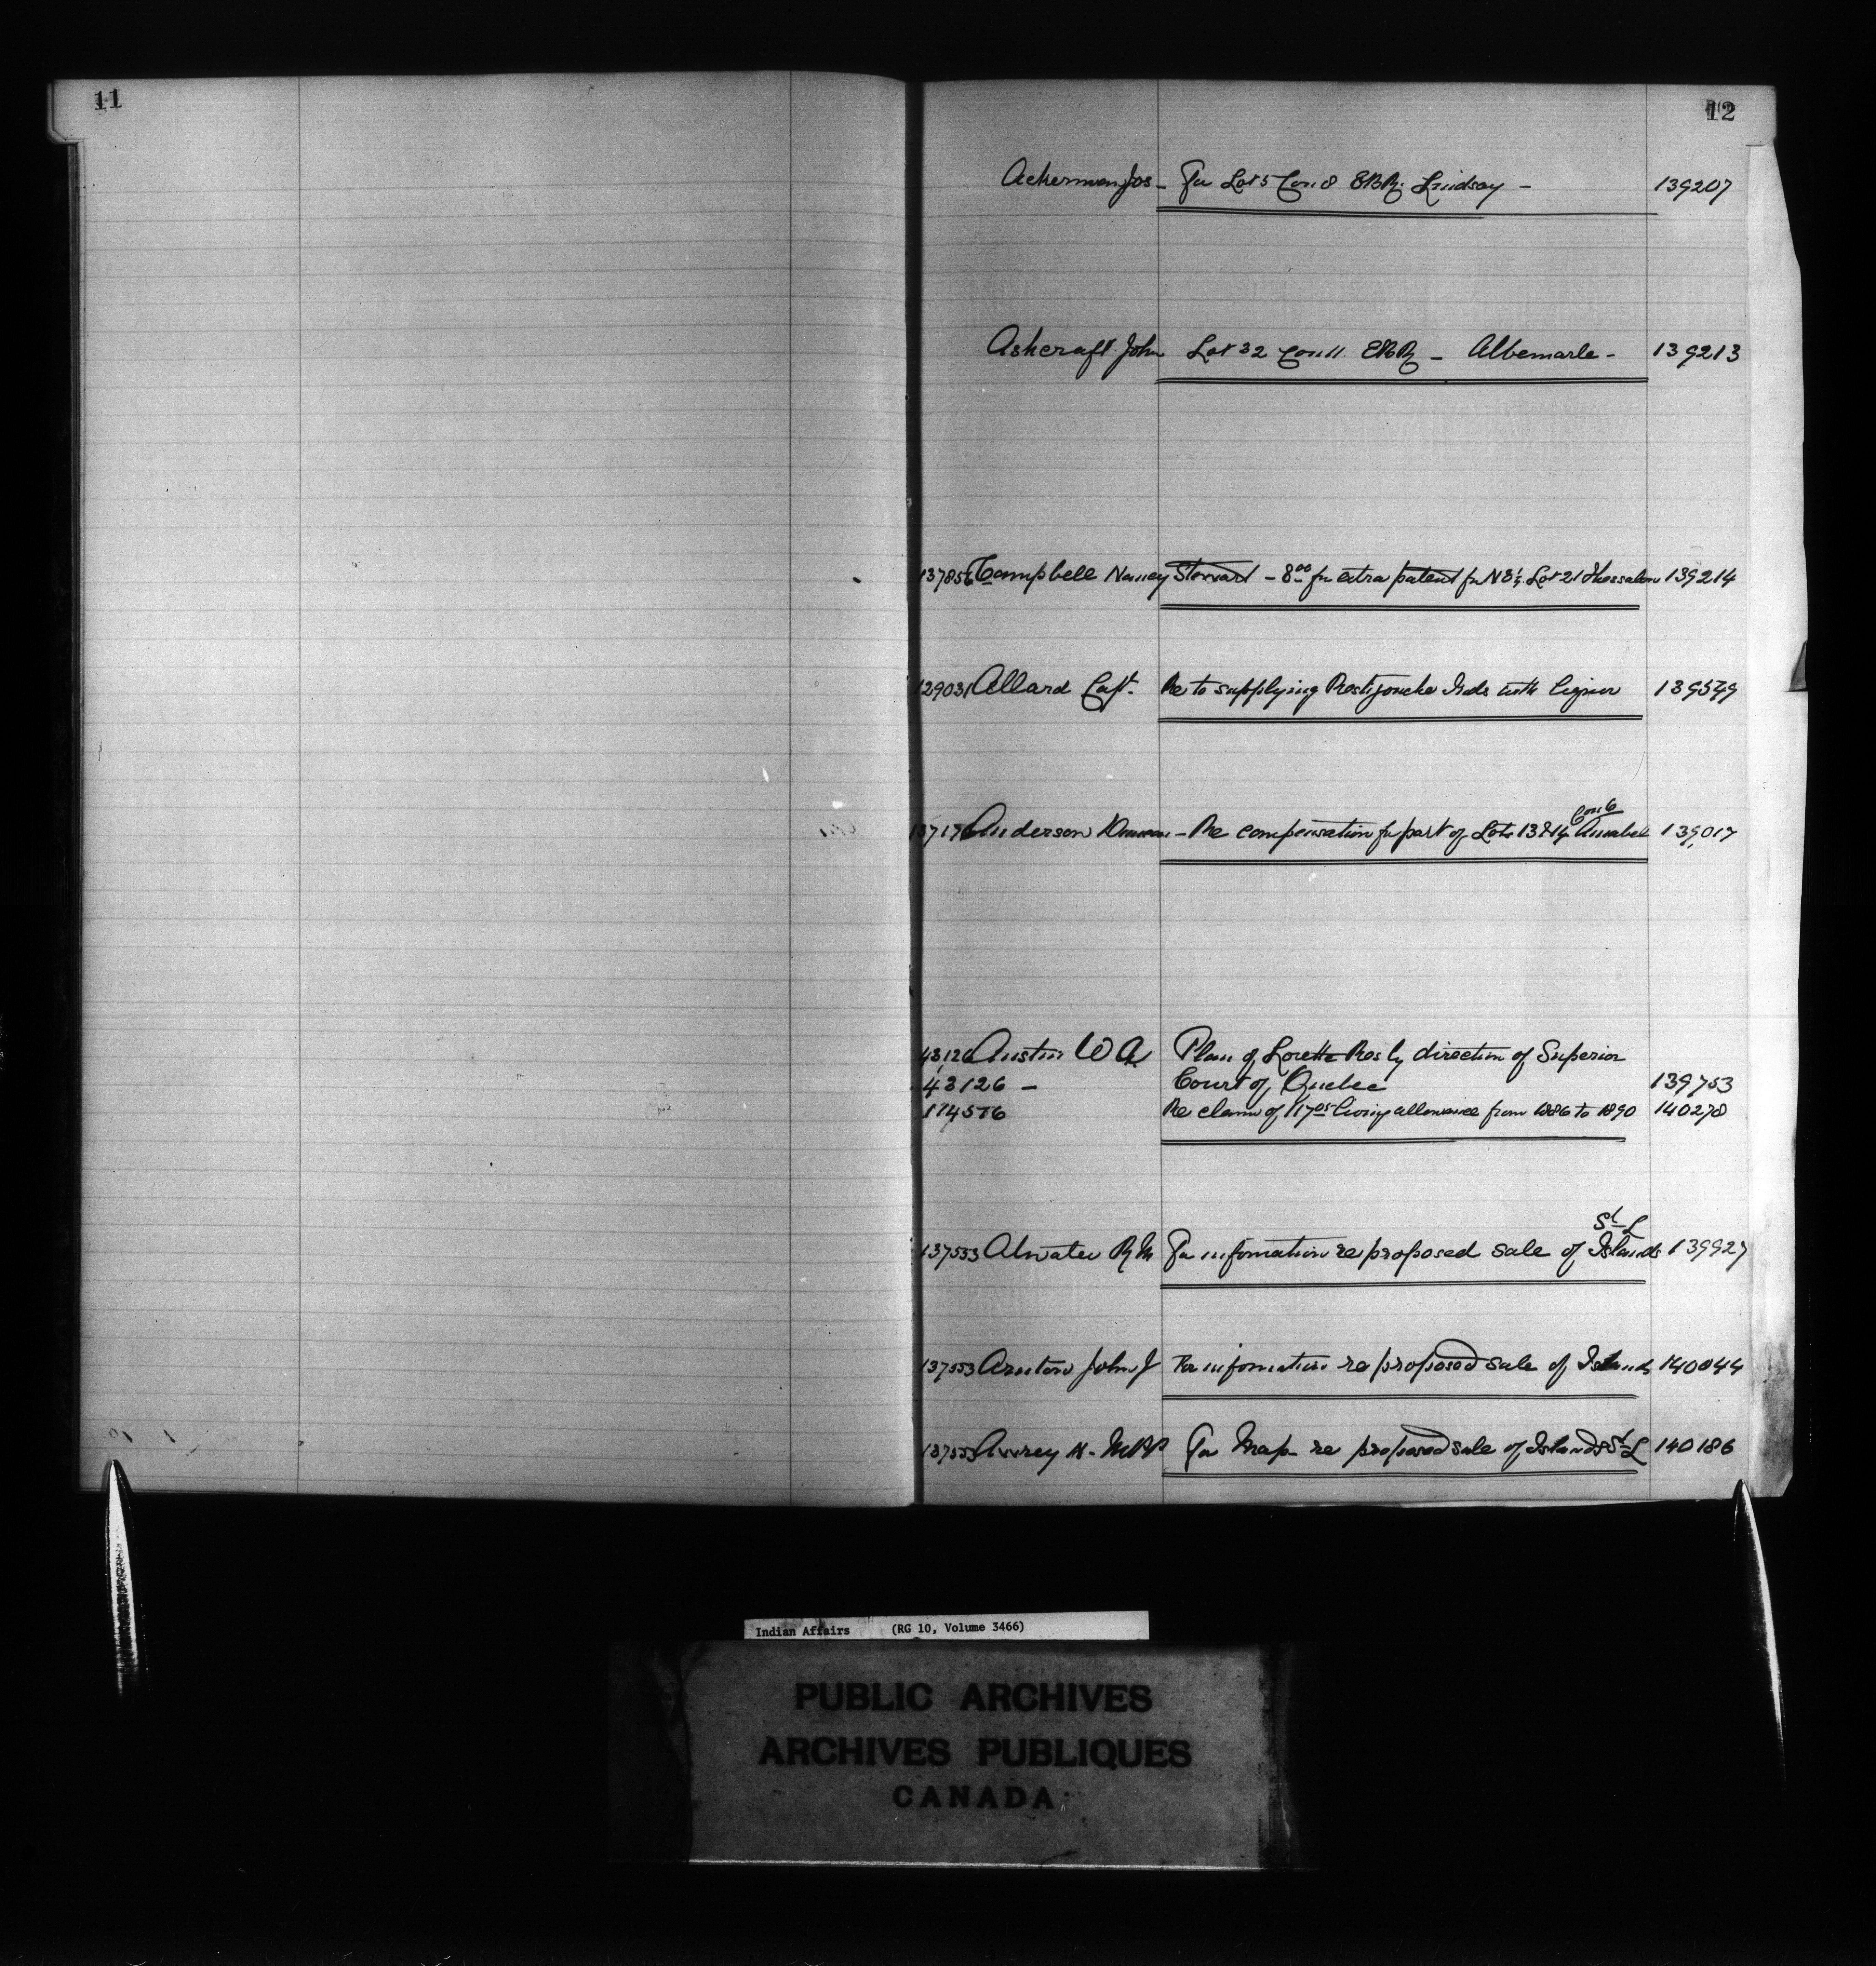 11
12
Ackerman Jos - For Lot 5 Con 8 EBR. Lindsay - 139207
Ashcraft John Lot 32 Con 11. EBR - Albemarle - 139213
137856 Campbell Nancy Stewart - 8.00 for extra patent for N E ¼ Lot 21 Thessalon 139214
129031 Allard Capt. Re to supplying Restigouche Inds with liquor 139549
Con 6
137176 Anderson Duncan - Re compensation for part of Lots 13 & 14 Amabel 139017
43,126 Austin W A. Plan of Lorette Res by direction of Superior
43126 - Court of Quebec 139753
174576 Re claim of 117.05 living allowance from 1886 to 1890 140278
St L
137553 Atwater R M For information re proposed sale of Islands 139927
137553 Arnton John J For information re proposed sale of Islands 140044
137553 Avrey H. MPP For Map - re proposed sale of Islands St L 140186
Indian Affairs (RG 10, Volume 3466)
PUBLIC ARCHIVES
ARCHIVES PUBLIQUES
CANADA